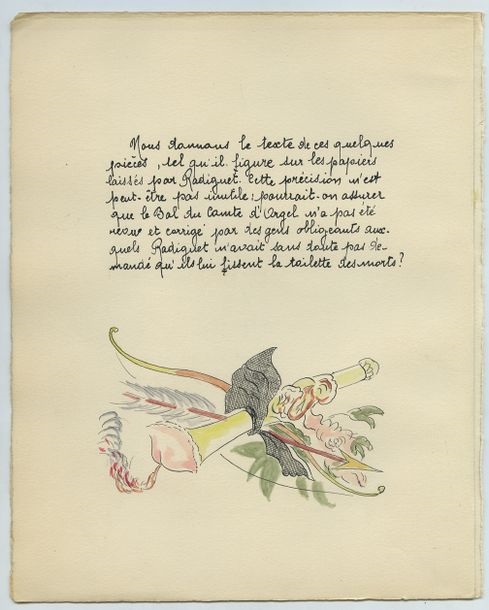 Nous donnons le texte de ces quelques
pièces, tel qu'il figure sur les papiers
laissés par Radiguet. Cette précision n'est
peut-être pas inutile: pourrait-on assurer
que le Bal du Comte d'Orgel n'a pas été
revu et corrigé par des gens obligeants aux-
quels Radiguet n'avait sans doute pas de-
mandé qu'ils lui fissent la toilette des morts?